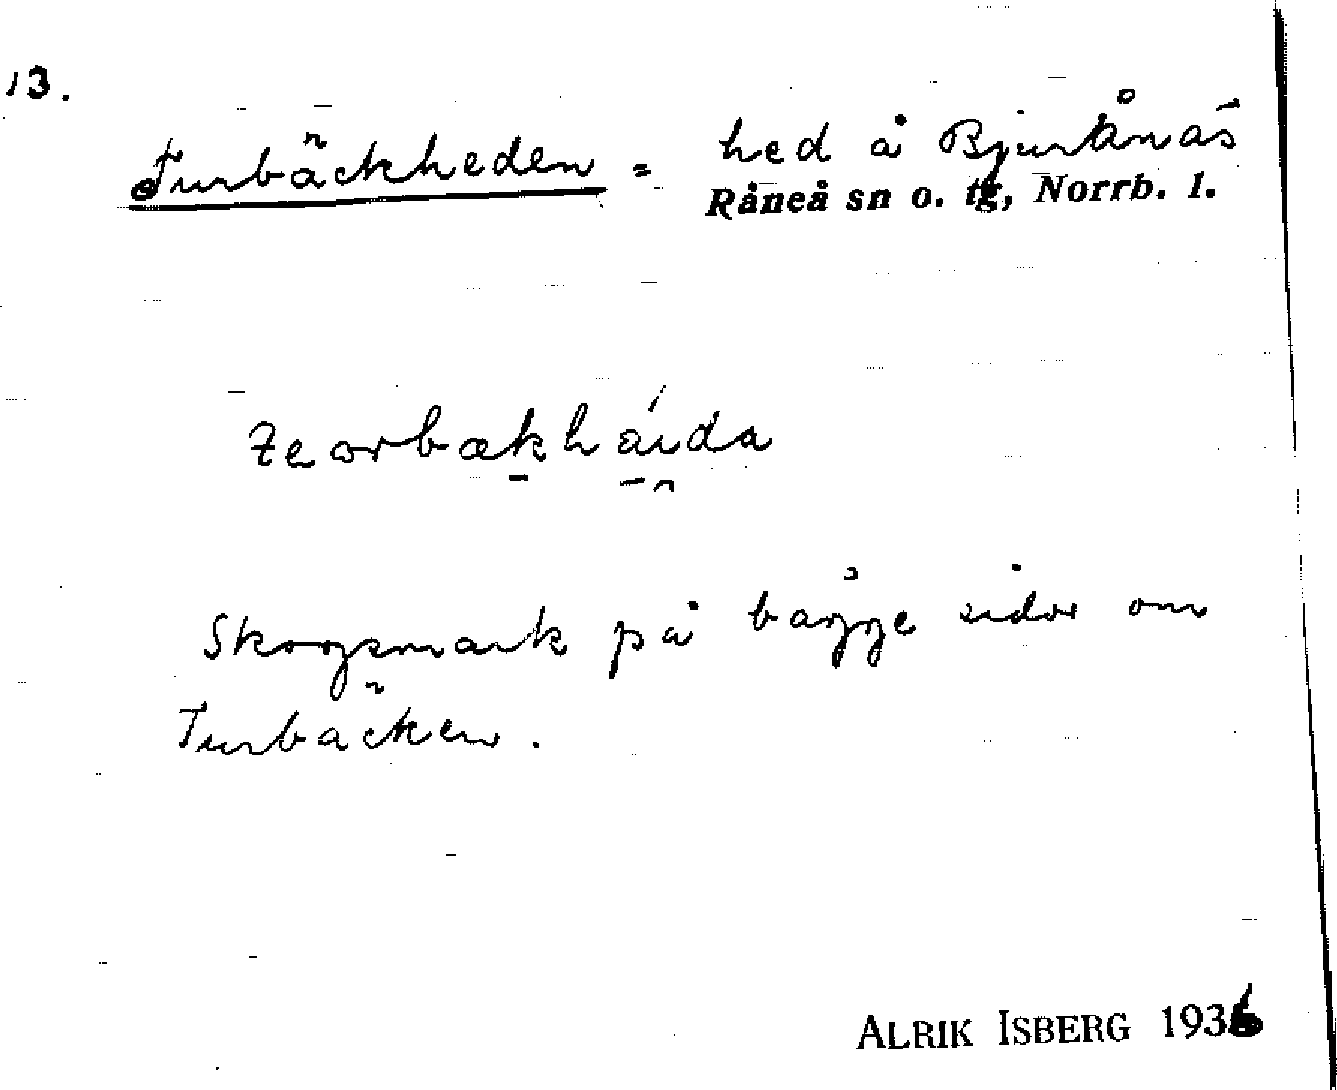 13.
Furbäckheden = hed å Bjurånäs
Råneå sn o. tg, Norrb. l.
Skogsmark på bägge sidor om
Furbäcken.
ALRIK ISBERG 1936